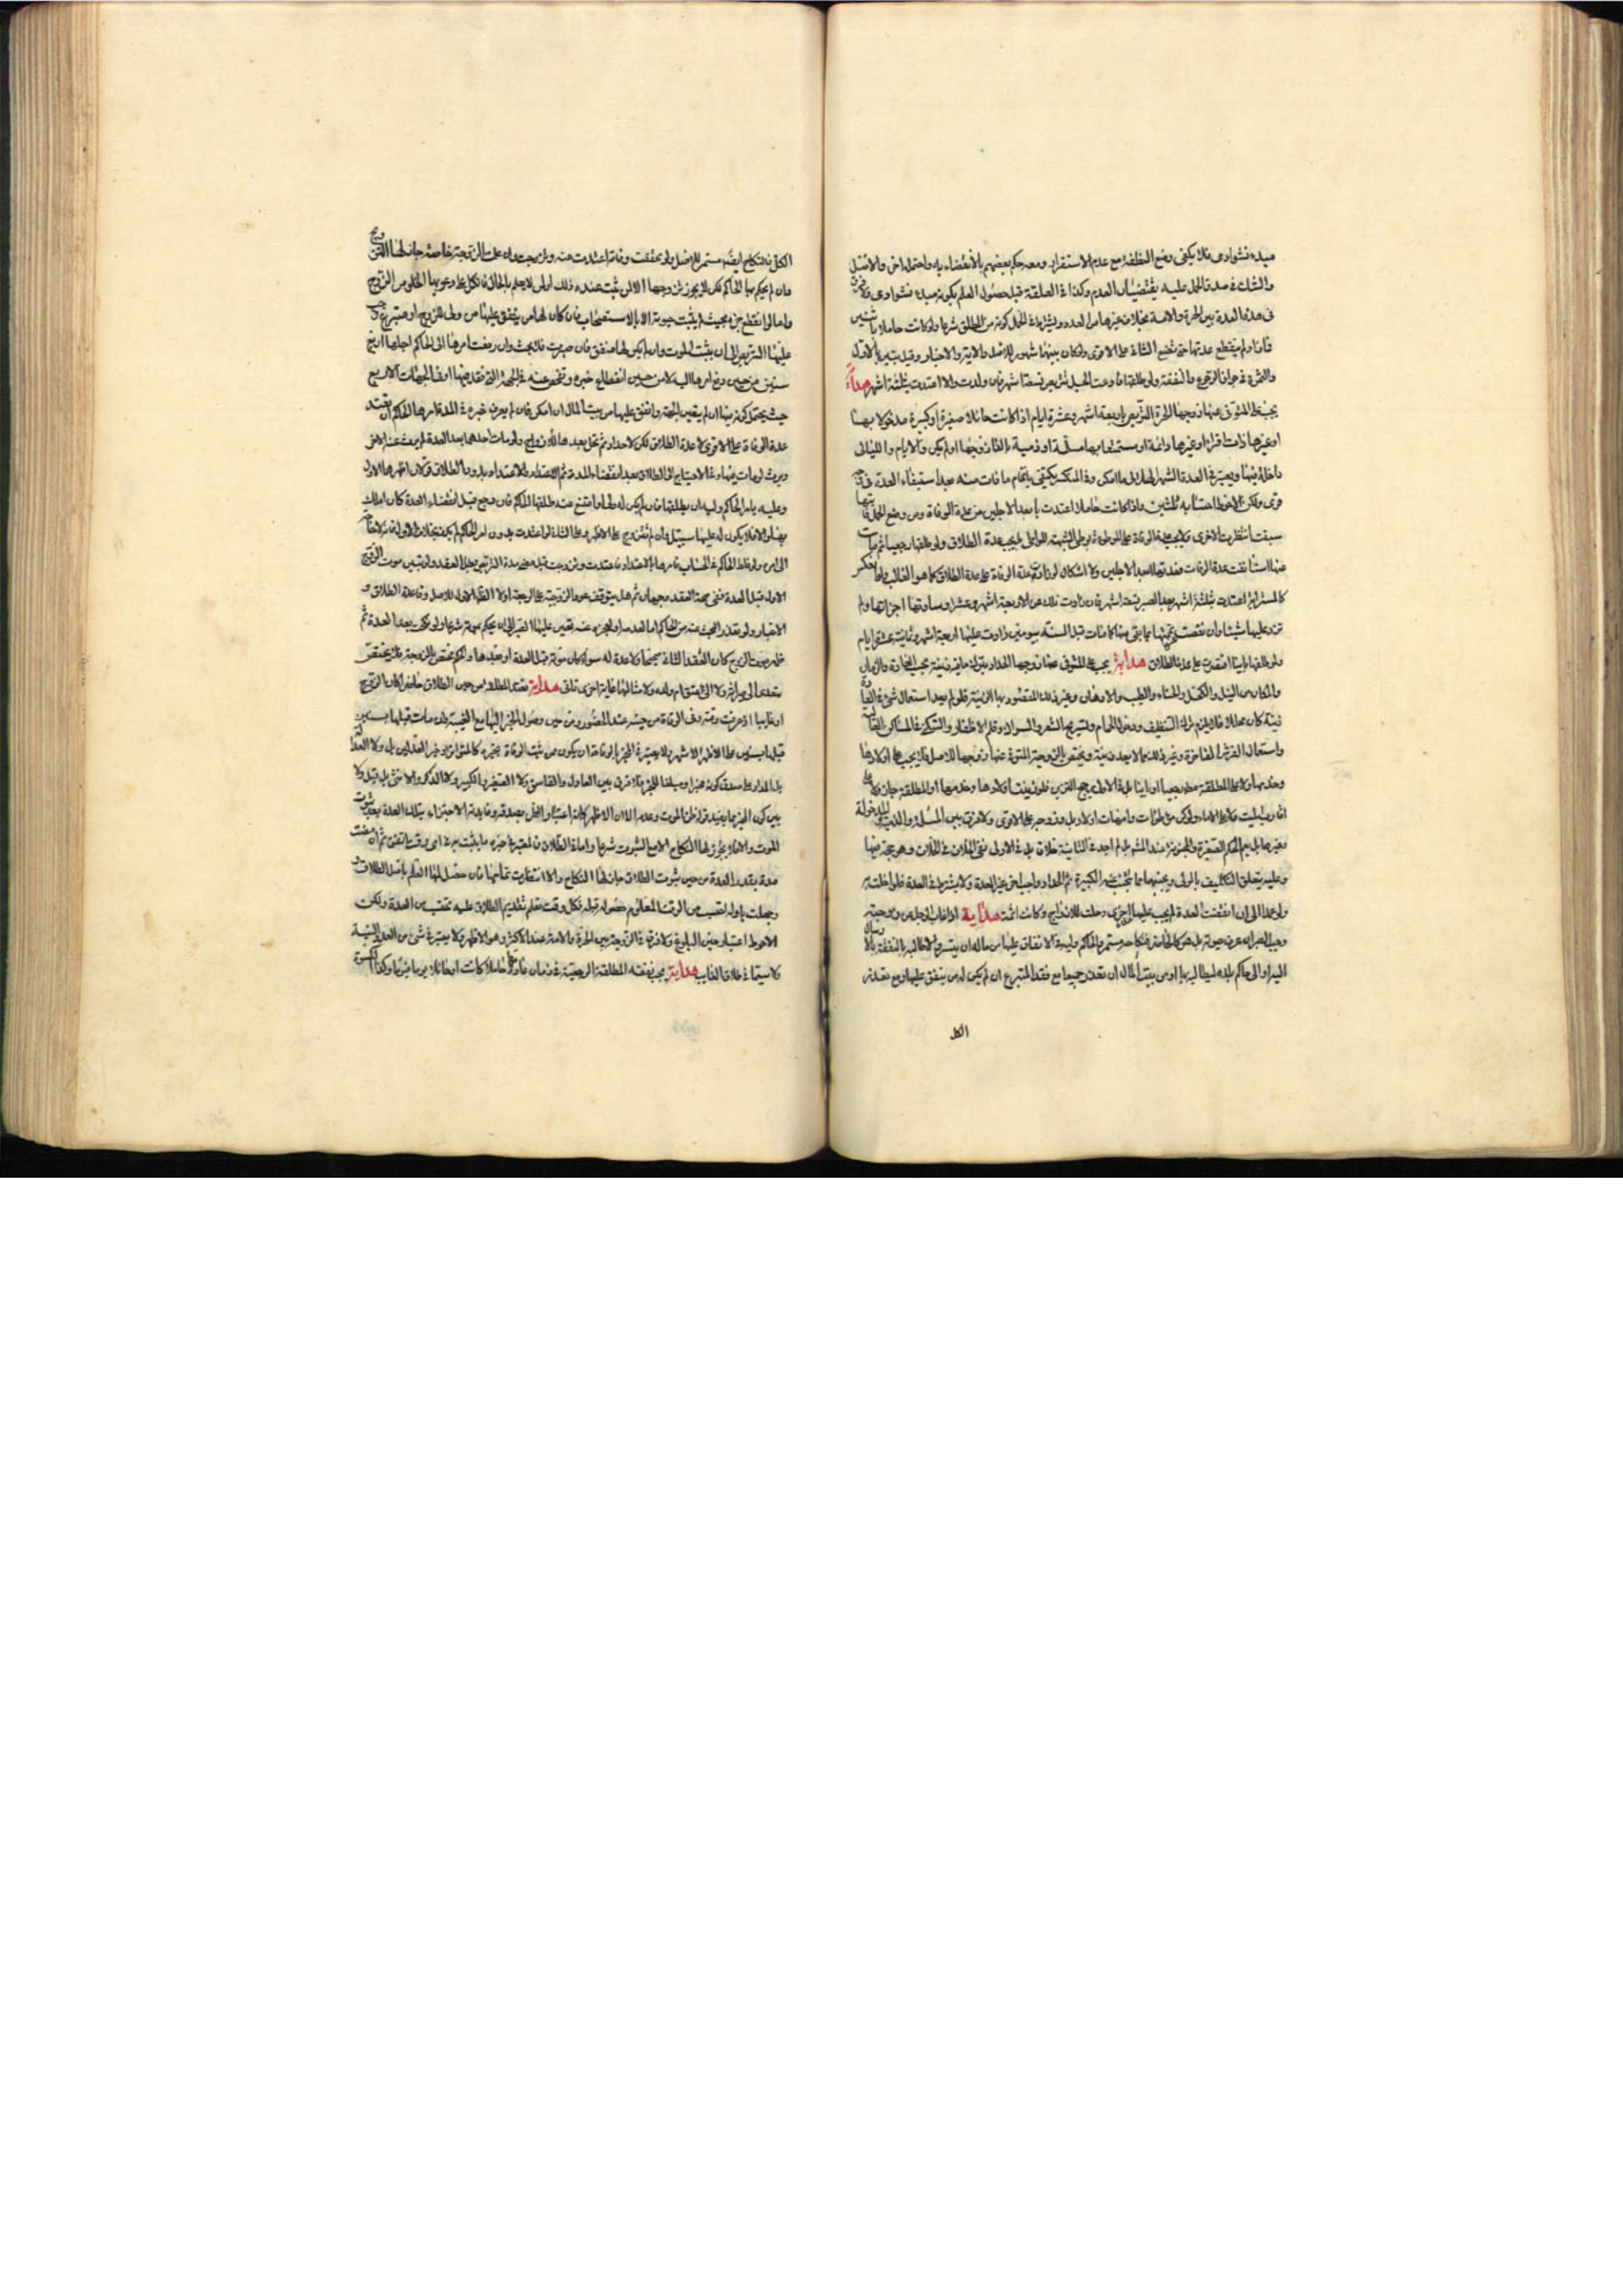 مبدء نشو ادمى فلا يكفى وضع النطفة مع عدم الاستقرار ومعه حكم بعضهم بالانقضاء به واحتمله اخر والاصل
والشك فى صدق الحمل عليه يقتضيان العدم وكذا فى العلقة قبل حصول العلم بكونه مبدء نشو ادمى ولا فرق
فى هذه العدة بين الحرة والامة بخلاف غيرها من العدد ويشترط فى الحمل كونه من المطلق شرعا ولو كانت حاملا باثنين
فانا ولم ينقطع عدتها حتى تضع الثانى على الاقوى ولو كان بينهما شهور للاصل والاية والاخبار وقيل تبين بالاول
والثمرة فى جواز الرجعى والنفقة ولو طلقها فادعت الحبل تربص تسعة اشهر فان ولدت والا اعتدت بثلثة اشهر هداية
يجب على المتوفى عنها زوجها الحرة التربص باربعة اشهر وعشرة ايام اذا كانت حائلا صغيرة او كبيرة مدخولا بها
او غيرها ذات اقراء او غيرها دائمة او مستمتعا بها مسلمة او ذمية بالغا زوجها او لم يكن والايام والليالى
داخلة فيها ويعتبر فى العدة الشهر الهلالى ما امكن وفى المنكسر يكتفى باتمام ما فات منه بعد استيفاء العدة
قوى ولكن الاحوط احتسابه ثلثين واذا كانت حاملا اعتدت بابعد الاجلين من عدة الوفاة ومن وضع الحمل فايتها
سبقت انتظرت الاخرى ولا يجب عدة الوفاة على الموطوءة بوطى الشبهة للواطى بل يجب عدة الطلاق ولو طلقها رجعيا ثم مات
عنها استانفت عدة الوفاة فعدتها ابعد الاجلين ولا اشكال لو زادت عدة الوفاة على عدة الطلاق كما هو الغالب ولو انعكس
كالمسترابة اعتدت بثلثة اشهر بعد الصبر تسعة اشهر فان زادت تلك عن الاربعة اشهر وعشرا وساوتها اجزائها ولم
تزد عليها شيئا وان نقصت تممتها مما بقى منها كما مات قبل السنة بيومين زادت عليها اربعة اشهر وثمانية عشرة ايام
ولو طلقها باينا اقتصرت على عدة الطلاق هداية يجب على المتوفى عنها زوجها الحداد بترك ما فيه زينة بحسب العادة والزمان
والمكان من اللبس والكحل والحناء والطيب والادهان وغير ذلك للمقصود بها الزينة فلو لم يعد استعمال شىء فى العادة
زينة كان حلالا فلا يلزم ترك التنظيف ودخول الحمام وتسريح الشعر والسواك وقلم الاظفار والسكنى فى المساكن العالية
واستعمال الفرش الفاخرة وغير ذلك مما لا يعد زينة ويختص بالزوجة المتوفى عنها زوجها للاصل فلا يجب على اولادها
وخدمها ولا على المطلقة مط رجعيا او باينا بل فى الاولى يرجح التزين فلو زينت اولادها وخدمها او المطلقة جاز ولا على
اقارب الميت ولا على الاماء ولو كن موطوات وامهات اولاد بل وزوجة على الاقوى ولا فرق بين المسلمة والذمية والمدخولة
وغيرها بل يعم الحكم الصغيرة والمجنونة عند المشهور بل لم اجد فى الثانية خلافا بل فى الاولى نفى الخلاف فى الخلاف وهو حجة فيها
وعليه يتعلق التكليف بالولى ويجنبها مما تجتنبه الكبيرة ثم الحداد واجب اخر غير العدة ولا يشترط فى العدة فلو اخلت به
ولو عمدا الى ان انقضت العدة لم يجب عليها اخرى وحلت للازواج وكانت اثمة هداية اذا غاب الرجل عن زوجته
وجب الصبر ان عرف حيوته بل هو كالحاضر فنكاحه مستمر والحاكم وليه فى الانفاق عليها من ماله ان تيسر والا طالبه بالنفقة بالارسال
اليه او الى حاكم بلده ليطالبه بها او من بيت المال ان تعذر جميعا مع فقد المتبرع ان لم يكن له من ينفق عليها ومع تعذر
الكل
الكل فالنكاح ايضا مستمر للاصل ولو تحققت وفاته اعتدت منه وتزوجت وان علمت الزوجة خاصة جاز لها التزويج
وان لم يحكم بها الحاكم لكن لا يجوز تزوجها الا لمن ثبت عنده ذلك اولمن لا يعلم بالحال فاتكل على دعويها الخلو من الزوج
واما لو انقطع خبره بحيث لم يثبت حيوته الا بالاستصحاب فان كان لها من ينفق عليها من ولى للزوج او متبرع وجب
عليها التربص الى ان يثبت الموت وان لم يكن لها منفق فان صبرت فلا بحث وان رفعت امرها الى الحاكم اجلها اربع
سنين من حين رفع امرها اليه لا من حين انقطاع خبره وتفحص عنه فى الجهة التى فقد فيها او فى الجهات الاربع
حيث يحتمل كونه فيها ان لم يتعين الجهة وانفق عليها من بيت المال ان امكن فان لم يعرف خبره فى المدة امرها الحاكم ان تعتد
عدة الوفاة على الاقوى لا عدة الطلاق لكن لا حداد ثم تحل بعدها للازواج ولو مات احدهما بعد العدة لم يرث عنه الاخر
ويرث لو مات فيها وفى الاحتياج الى الطلاق بعد انقضاء المدة ثم الاعتداد والاعتداد بدون الطلاق قولان اظهرهما الاول
وعليه يامر الحاكم وليه ان يطلقها فان لم يكن له ولى او امتنع منه طلقها الحاكم فان رجع قبل انقضاء العدة كان املك
بها والا فلا يكون له عليها سبيل وان لم تتزوج على الاظهر وعلى الثانى لو اعتدت بدون امر الحاكم لم يجز بخلاف الاول
الى امره ولو غلط الحاكم فى الحساب فامرها بالاعتداد فاعتدت وتزوجت قبل مضى مدة التربص بطل العقد ولو تبين موت الزوج
الاول قبل العدة ففى صحة العقد وجهان ثم هل يتوقف عود الزوجية على الرجعة اولا الظاهر الاول للاصل وقاعدة الطلاق و
الاخبار ولو تعذر البحث عنه من الحاكم اما لعدمه او لعجزه عنه تعين عليها الصبر الى ان يحكم بموته شرعا ولو نكحت بعد العدة ثم
ظهر موت الزوج كان العقد الثانى صحيحا ولا عدة له سواء كان موته قبل العدة او بعدها والحكم مختص بالزوجة فلا يختص
بتعدى الى ميراثه ولا الى عتق ام ولده ولا شالها غاية اخرى تلقى هداية تعتد المطلقة من حين الطلاق حاضرا كان الزوج
او غايبا اذ عرفت وقته وفى الوفاة من حينه عند الحضور ومن حين وصول الخبر اليها مع الغيبة وان مات قبلها بسنين
قبلها بسنين على الاظهر الاشهر ولا يعتبر فى المخبر بالوفاة ان يكون ممن يثبت الوفاة بخبره كالمتواتر وخبر العدلين بل ولا العدالة
بل المدار على صدق كونه مخبرا ومبلغا للخبر فلا فرق بين العادل والفاسق ولا الصغير والكبير ولا الذكر والانثى بل قيل ولا
بين كون الخبر مما يفيد قوله ظن الموت وعدمه الا ان الاظهر كانه اعتبار الظن بصدقه وفايدته الاجتزاء بتلك العدة بعد ثبوت
الموت والا فلا يجوز لها النكاح الا مع الثبوت شرعا واما فى الطلاق فالمعتبر فى خبره ما يثبت به فى اى وقت اتفق ثم ان مضت
مدة بقدر العدة من حين ثبوت الطلاق جاز لها النكاح والا انتظرت تمامها فان حصل لها العلم باصل الطلاق
وجهلت باوله احتسبت من الوقت المعلوم حصوله قبله فكل وقت تعلم تقديم الطلاق عليه تحتسب من العدة ولكن
الاحوط اعتبار حين البلوغ ولا فرق فى الزوجة بين الحرة والامة عند الاكثر وهو الاظهر ولا يعتبر فى شىء من العدد النية
ولا سيما فى طلاق الغايب هداية تجب نفقة المطلقة الرجعية فى زمان عدتها حاملا كانت او حائلا يوما فيوما وكذا الكسوة